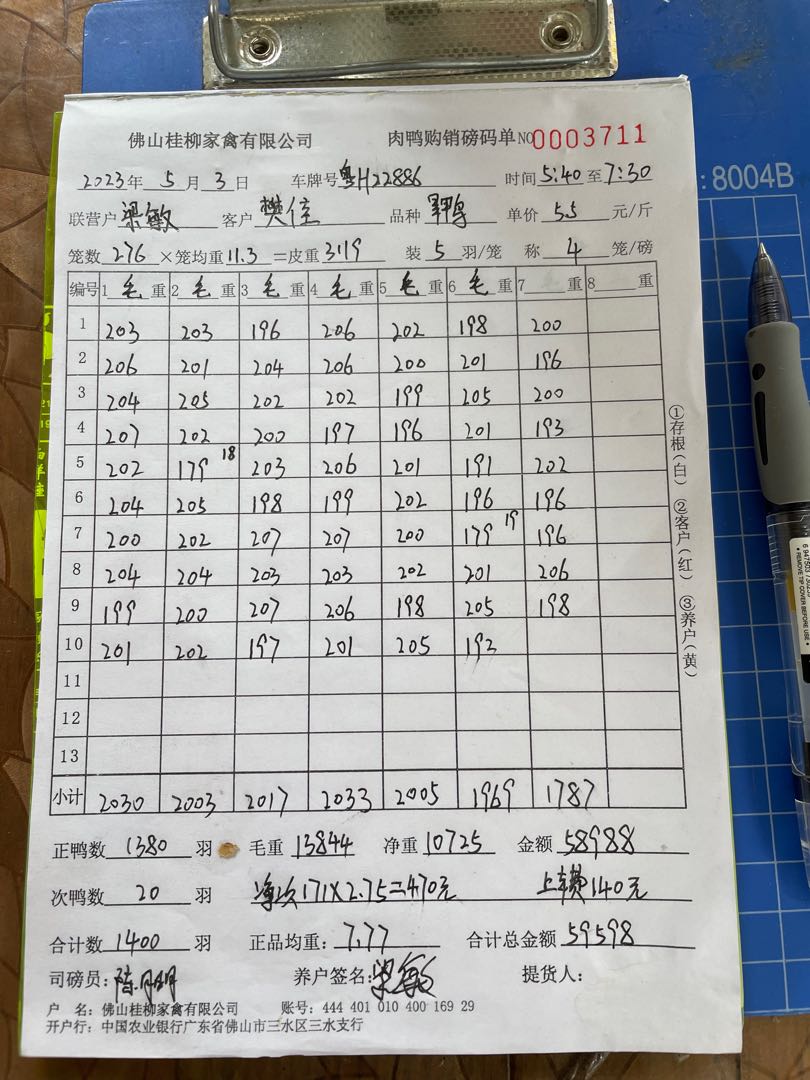 佛山桂柳家禽有限公司 肉鸭购销磅码单 NO 0003711
2023年 5月 3日 车牌号 粤H22886 时间 5:40 至 7:30
联营户 梁敏 客户 樊佳 品种 单价 5.5 元/斤
笼数 276 ×笼均重 11.3 =皮重 3119 装 5 羽/笼 称 4 笼/磅
编号 1 毛 重 2 毛 重 3 毛 重 4 毛 重 5 毛 重 6 毛 重 7 重 8 重
1 203 203 196 206 202 198 200
2 206 201 204 206 200 201 196
3 204 205 202 202 199 205 200
4 207 202 200 197 196 201 193
5 202 179 18 203 206 201 191 202
6 204 205 198 199 202 196 196
7 200 202 207 207 200 179 19 196
8 204 204 203 203 202 201 206
9 199 200 207 206 198 205 198
10 201 202 197 201 205 192
11
12
13
小计 2030 2003 2017 2033 2005 1969 1787
正鸭数 1380 羽 毛重 13844 净重 10725 金额 58988
次鸭数 20 羽 净次 171×2.75=470元 上车费140元
合计数 1400 羽 正品均重: 7.77 合计总金额 59598
司磅员: 养户签名: 梁敏 提货人:
户 名: 佛山桂柳家禽有限公司 账号: 444 401 010 400 169 29
开户行: 中国农业银行广东省佛山市三水区三水支行
①存根(白) ②客户(红) ③养户(黄)
:8004B